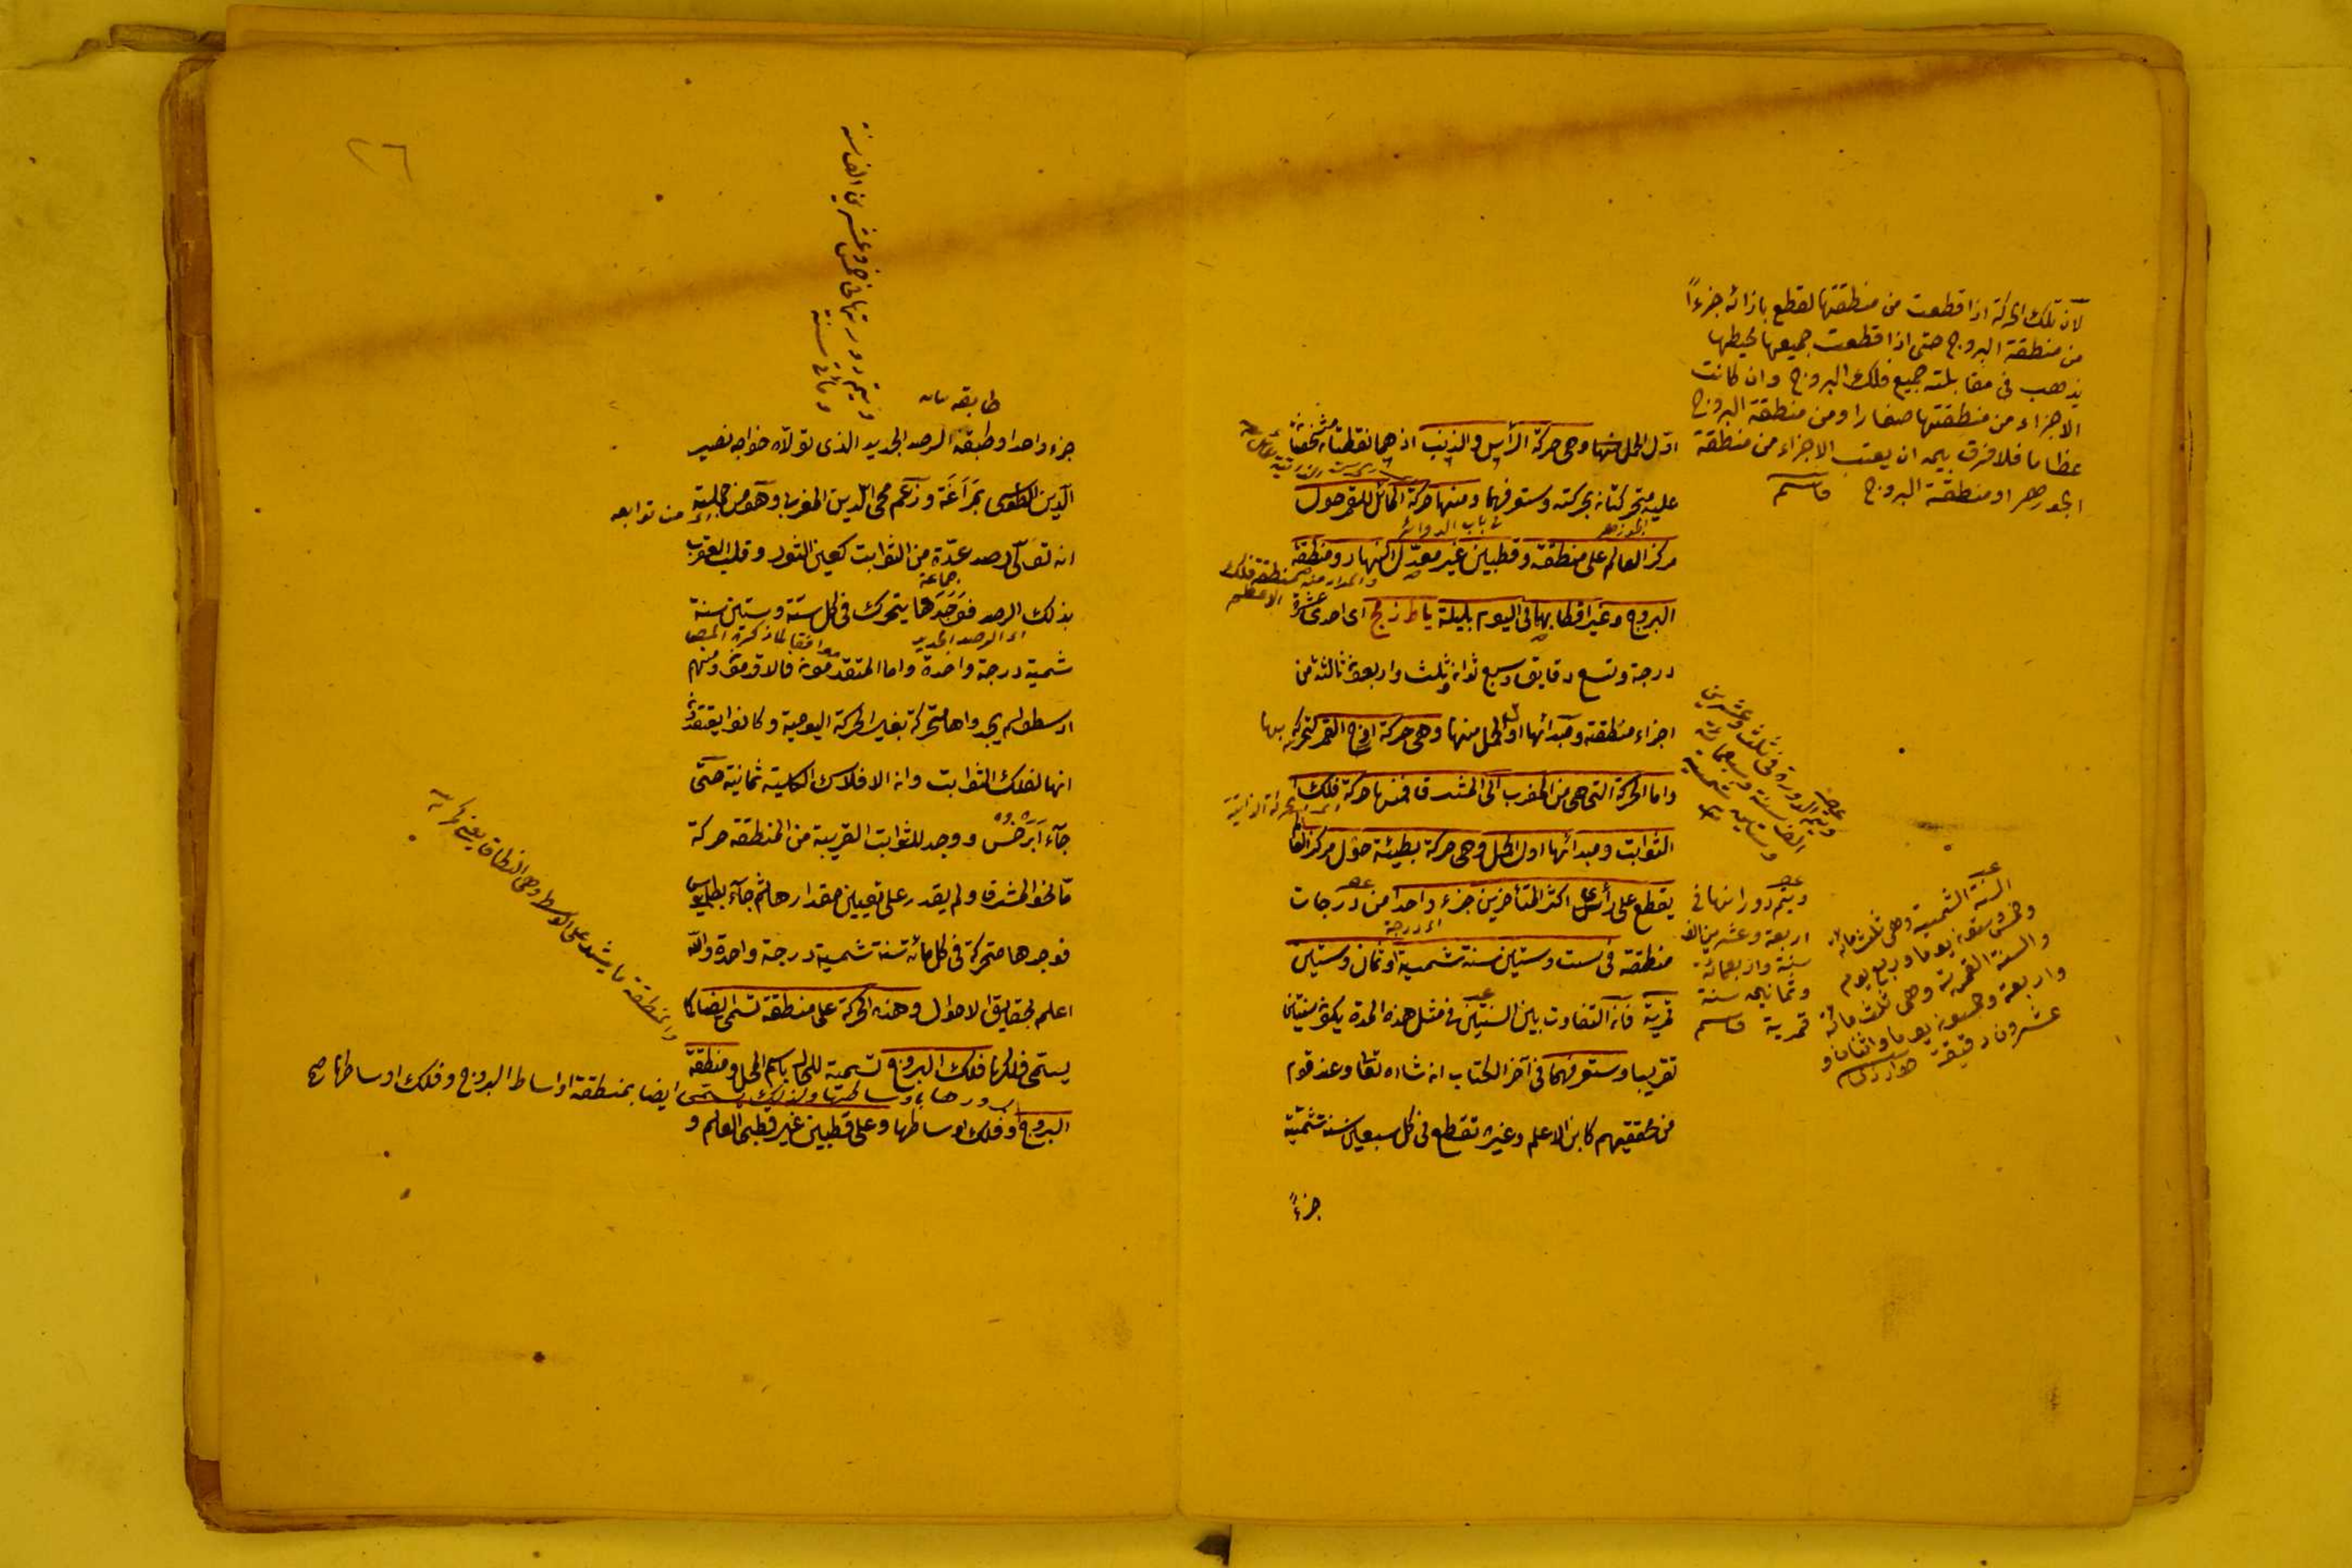 لان تلك الحركة اذا قطعت من منطقتها لقطع بازائه جزءاً
من منطقة البروج حتى اذا قطعت جميعها محيطها
يذهب في مقابلته جميع فلك البروج وان كانت
الاجزاء من منطقتها صغارا ومن منطقة البروج
عظاما فلا فرق بين ان يعتبر الاجزاء من منطقة
الجوزهر او منطقة البروج قاسم
اول الحمل منها وهي حركة الرأس والذنب اذ هما نقطتان مشخصتان
عليه متحركتان بحركته وستعرفهما ومنها حركة المائل للقمر حول
الجوزهر في باب الدوائر
مركز العالم على منطقة وقطبين غير معدل النهار ومنطقة
البروج وغير اقطابهما في اليوم بليلة يا ط ز مج اى احدى عشرة
درجة وتسع دقايق وسبع ثوان وثلث واربعون ثالثة من
اجزاء منطقته ومبدأها اول الحمل منها وهي حركة اوج القمر لتحركه بها
واما الحركة التي هي من المغرب الى المشرق فمنها حركة فلك
الثوابت ومبدأها اول الحمل وهي حركة بطيئة حول مركز العالم
يقطع على رأى اكثر المتأخرين جزء واحدا من درجات
اى درجة
منطقته في ست وستين سنة شمسية او ثمان وستين
قمرية فان التفاوت بين السنتين في مثل هذه المدة يكون سنتين
تقريبا وستعرفهما في آخر الكتاب ان شاء الله تعالى وعند قوم
من محققيهم كابن الاعلم وغيره تقطع في كل سبعين سنة شمسية
جزءاً
ويتم الدورة في ثلث وعشرين
الف سنة وسبعمائة
وستين شمسية
ويتم دورانها في
اربعة وعشرين الف
سنة واربعمائة
وثمانين سنة
قمرية قاسم
السنة الشمسية وهي ثلث مائة
وخمس وستون يوما وربع يوم
والسنة القمرية وهي ثلث مائة
واربعة وخمسون يوما واثنان و
عشرون دقيقة
٢٦
ويتم دورتها في خمس وعشرين الف سنة
ومأتى سنة
طابقه
جزء واحدا وطبقه الرصد الجديد الذى تولاه خواجه نصير
الدين الطوسى بمراغة وزعم محى الدين المغربى وهو من جملة
من توابعه
انه تولى رصد عدة من الثوابت كعين الثور وقلب العقرب
جماعة
بذلك الرصد فوجدها يتحرك في كل ستة وستين سنة
اى الرصد الجديد موافقا لما ذكره المص
شمسية درجة واحدة واما المتقدمون فالاقدمون ومنهم
ارسطو لم يجدواها متحركة بغير الحركة اليومية وكانوا يعتقدون
انها لفلك الثوابت وان الافلاك الكلية ثمانية حتى
جآء ابرخس ووجد للثوابت القريبة من المنطقة حركة
ما نحو المشرق ولم يقدر على تعيين مقدارها ثم جآء بطلميوس
فوجدها متحركة في كل مائة سنة شمسية درجة واحدة والله
اعلم بحقايق الاحوال وهذه الحركة على منطقة تسمى ايضا كما
يسمى فلكها فلك البروج تسمية للمحل باسم الحال ومنطقة
ايضا بمنطقة اواسط البروج وفلك اوساطها صح
البروج وفلك اوساطها وعلى قطبين غير قطبى العالم و
والمنطقة ما يشد على الوسط وهي النطاق